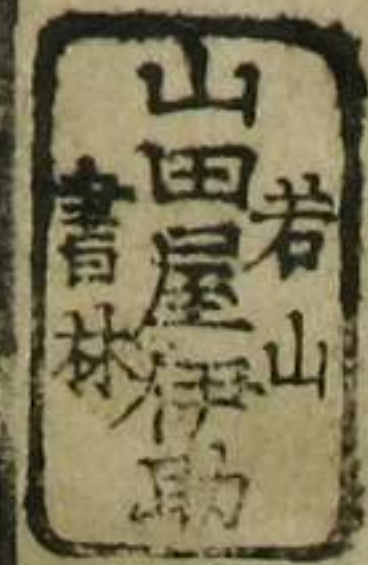 若山
山田屋伊助
書林